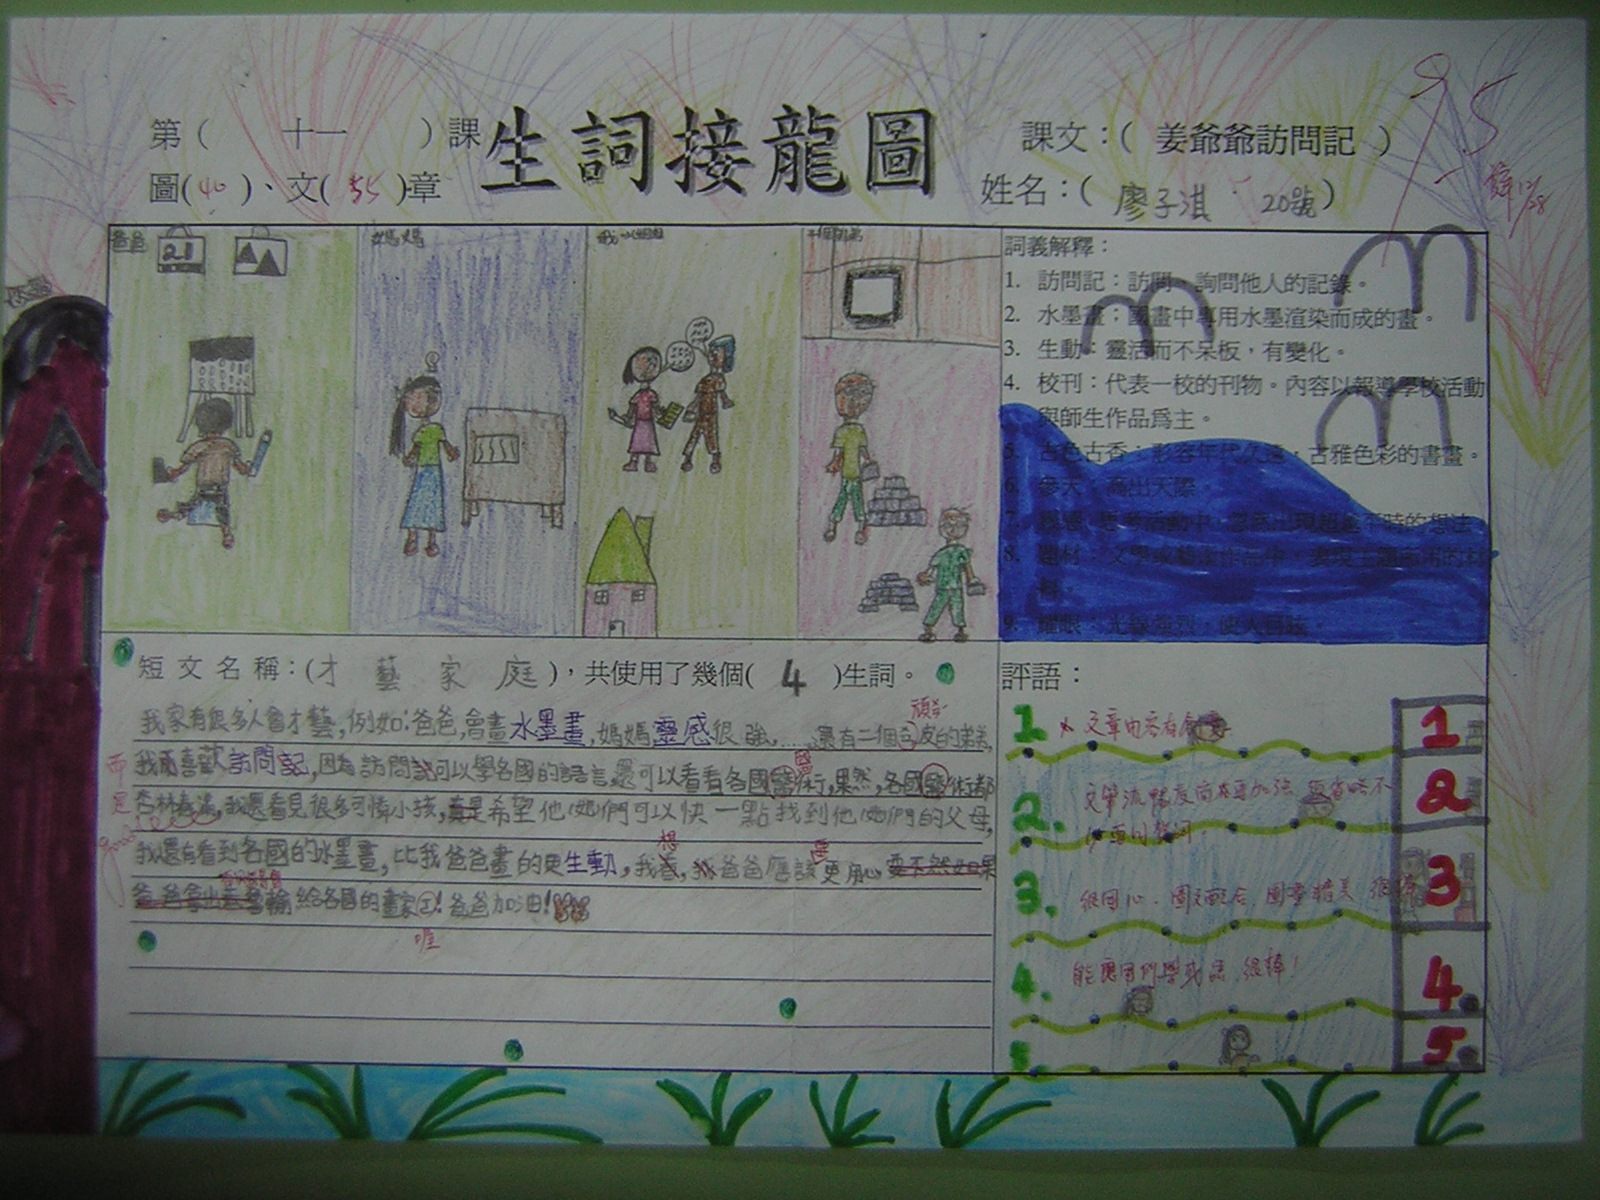 第（ 十一 ）課
生詞接龍圖
課文：( 姜爺爺訪問記 )
95
圖(40)、文(55)章
姓名：( 廖子淇 20號)
12/28
爸爸
21
媽媽
詞義解釋：
1. 訪問記：訪問、詢問他人的記錄。
2. 水墨畫：國畫中專用水墨渲染而成的畫。
3. 生動：靈活而不呆板，有變化。
4. 校刊：代表一校的刊物。內容以報導學校活動
與師生作品爲主。
5. 古色古香：形容年代久遠，古雅色彩的書畫。
6. 參天：高出天際。
7. 靈感：思考活動中，忽然出現
8. 題材：文學或藝術作品中，表現主題
9. 耀眼：光線強烈，使人目眩
短文名稱：(才藝家庭)，共使用了幾個( 4 )生詞。
我家有很多人會才藝，例如：爸爸，會畫水墨畫，媽媽靈感很強，……還有二個皮的弟弟，
我喜歡訪問記，因為訪問可以學各國的語言，還可以看看各國藝術，果然，各國藝術都
杏林春滿，我還看見很多可憐小孩，真是希望他(她)們可以快一點找到他(她)們的父母，
我還有看到各國的水墨畫，比我爸爸畫的更生動，我想，我爸爸應該更用心要不然如果
爸爸拿出去會輸給各國的畫家 ! 爸爸加油!
喔
評語：
1. 文章內容有
2. 文章流暢度尚
3. 很用心，圖文配合，圖畫精美
4. 能應用所學成語，很棒！
5.
1
2
3
4.
5.